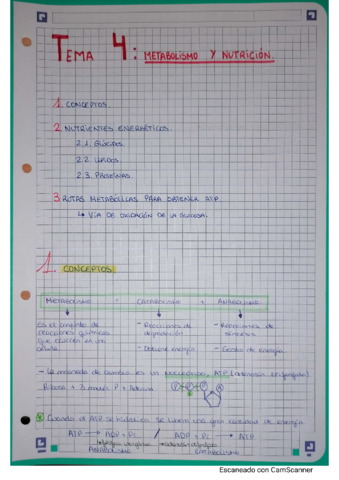 TEMA 4: METABOLISMO Y NUTRICIÓN.
1. CONCEPTOS.
2. NUTRIENTES ENERGÉTICOS.
2.1. GLÚCIDOS.
2.2. LÍPIDOS.
2.3. PROTEÍNAS.
3. RUTAS METABÓLICAS PARA OBTENER ATP.
↳ VÍA DE OXIDACIÓN DE LA GLUCOSA.
1. CONCEPTOS
METABOLISMO = CATABOLISMO + ANABOLISMO
Es el conjunto de reacciones químicas que ocurren en una célula.
- Reacciones de degradación
- Obtiene energía
- Reacciones de síntesis
- Gasto de energía.
- La moneda de cambio es un nucleótido, ATP (adenosín trifosfato)
Ribosa + 3 moléc P + Adenina
P P P
* Cuando el ATP se hidroliza se libera una gran cantidad de energía
ATP → ADP + Pi / ADP + Pi → ATP
ANABOLISMO CATABOLISMO
Escaneado con CamScanner